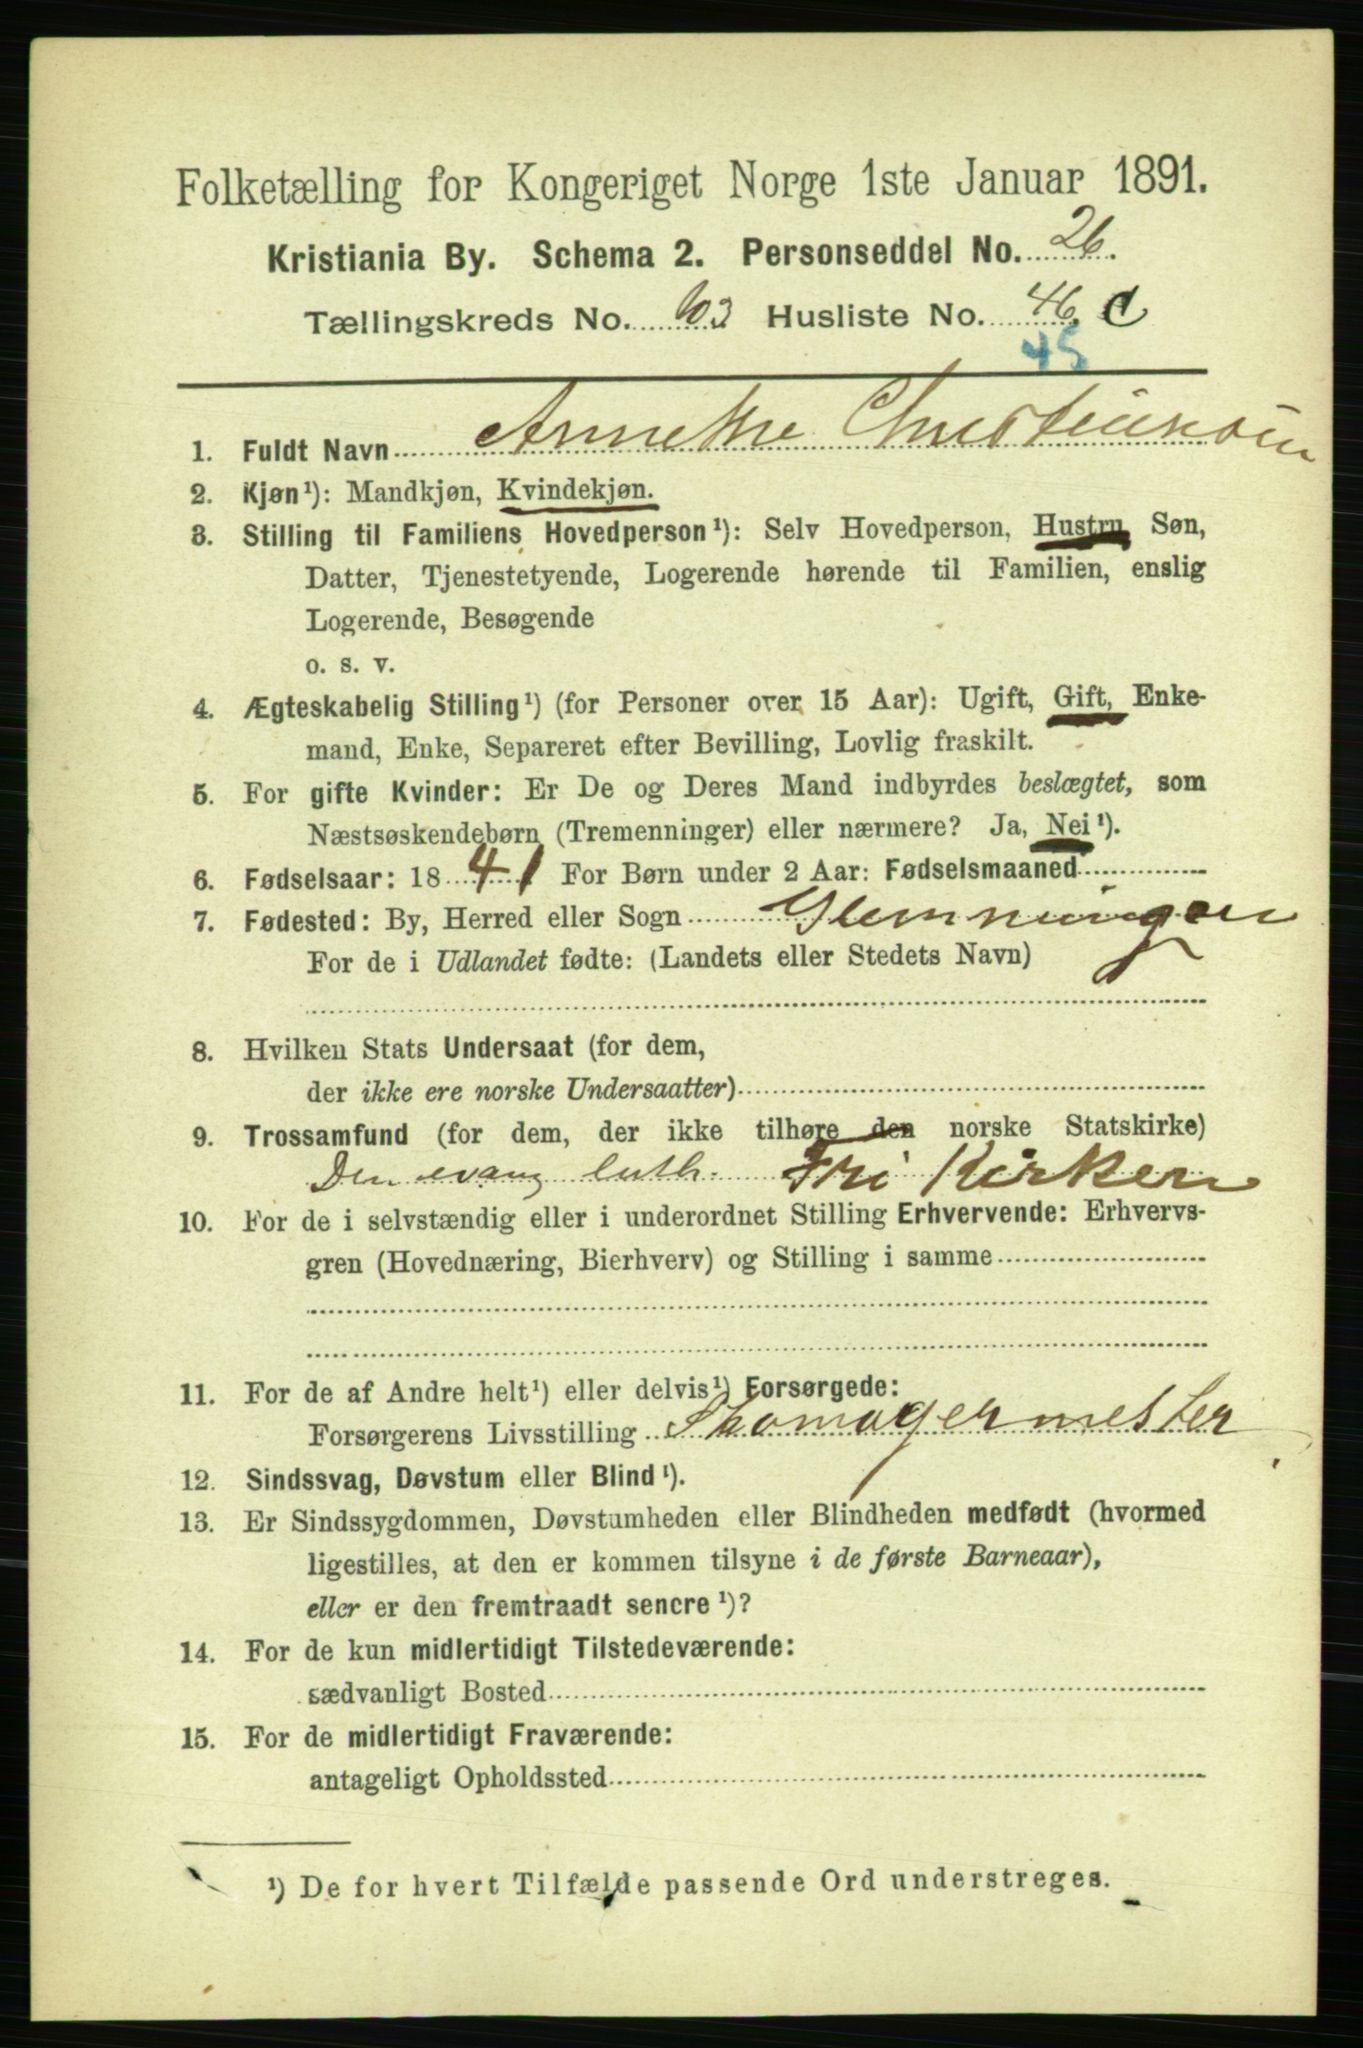 Folketælling for Kongeriget Norge 1ste Januar 1891.
Kristiania By. Schema 2. Personseddel No. 26.
Tællingskreds No. 103 Husliste No. 46. d
45
1. Fuldt Navn Annethe Christiansen
2. Kjøn¹): Mandkjøn, Kvindekjøn.
3. Stilling til Familiens Hovedperson¹): Selv Hovedperson, Hustru, Søn,
Datter, Tjenestetyende, Logerende hørende til Familien, enslig
Logerende, Besøgende
o. s. v.
4. Ægteskabelig Stilling¹) (for Personer over 15 Aar): Ugift, Gift, Enke-
mand, Enke, Separeret efter Bevilling, Lovlig fraskilt.
5. For gifte Kvinder: Er De og Deres Mand indbyrdes beslægtet, som
Næstsøskendebørn (Tremenninger) eller nærmere? Ja, Nei¹).
6. Fødselsaar: 1841 For Børn under 2 Aar: Fødselsmaaned
7. Fødested: By, Herred eller Sogn Glemmingen
For de i Udlandet fødte: (Landets eller Stedets Navn)
8. Hvilken Stats Undersaat (for dem,
der ikke ere norske Undersaatter)
9. Trossamfund (for dem, der ikke tilhøre den norske Statskirke)
Den evang luth. Fri Kirken
10. For de i selvstændig eller i underordnet Stilling Erhvervende: Erhvervs-
gren (Hovednæring, Bierhverv) og Stilling i samme
11. For de af Andre helt¹) eller delvis¹) Forsørgede:
Forsørgerens Livsstilling Skomagermester
12. Sindssvag, Døvstum eller Blind¹).
13. Er Sindssygdommen, Døvstumheden eller Blindheden medfødt (hvormed
ligestilles, at den er kommen tilsyne i de første Barneaar),
eller er den fremtraadt senere¹)?
14. For de kun midlertidigt Tilstedeværende:
sædvanligt Bosted
15. For de midlertidigt Fraværende:
antageligt Opholdssted
¹) De for hvert Tilfælde passende Ord understreges.